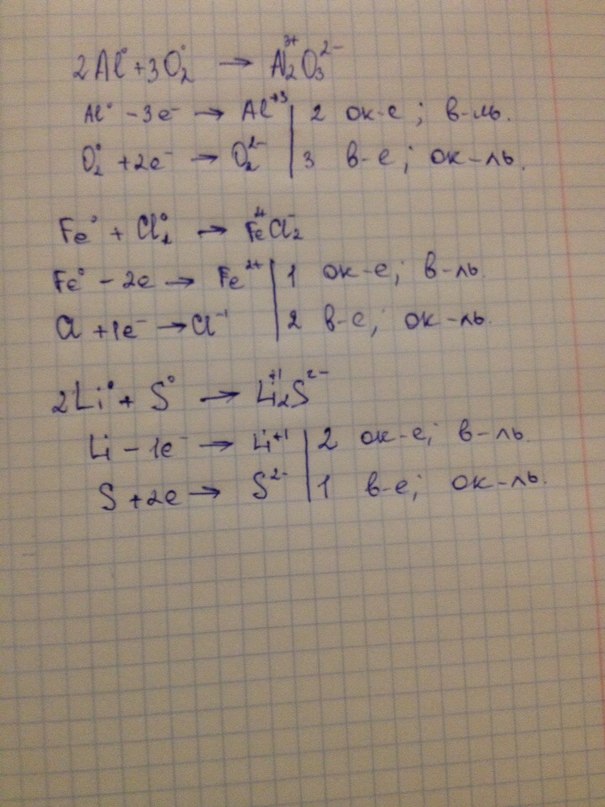 2Al⁰ + 3O₂⁰ → Al₂³⁺O₃²⁻
Al⁰ - 3e⁻ → Al⁺³ | 2 ок-е; в-ль.
O₂⁰ + 2e⁻ → O₂²⁻ | 3 в-е; ок-ль.
Fe⁰ + Cl₂⁰ → FeCl₂⁻
Fe⁰ - 2e → Fe²⁺ | 1 ок-е; в-ль.
Cl + 1e⁻ → Cl⁻¹ | 2 в-е; ок-ль.
2Li⁰ + S⁰ → Li₂⁺¹S²⁻
Li - 1e⁻ → Li⁺¹ | 2 ок-е; в-ль.
S + 2e → S²⁻ | 1 в-е; ок-ль.